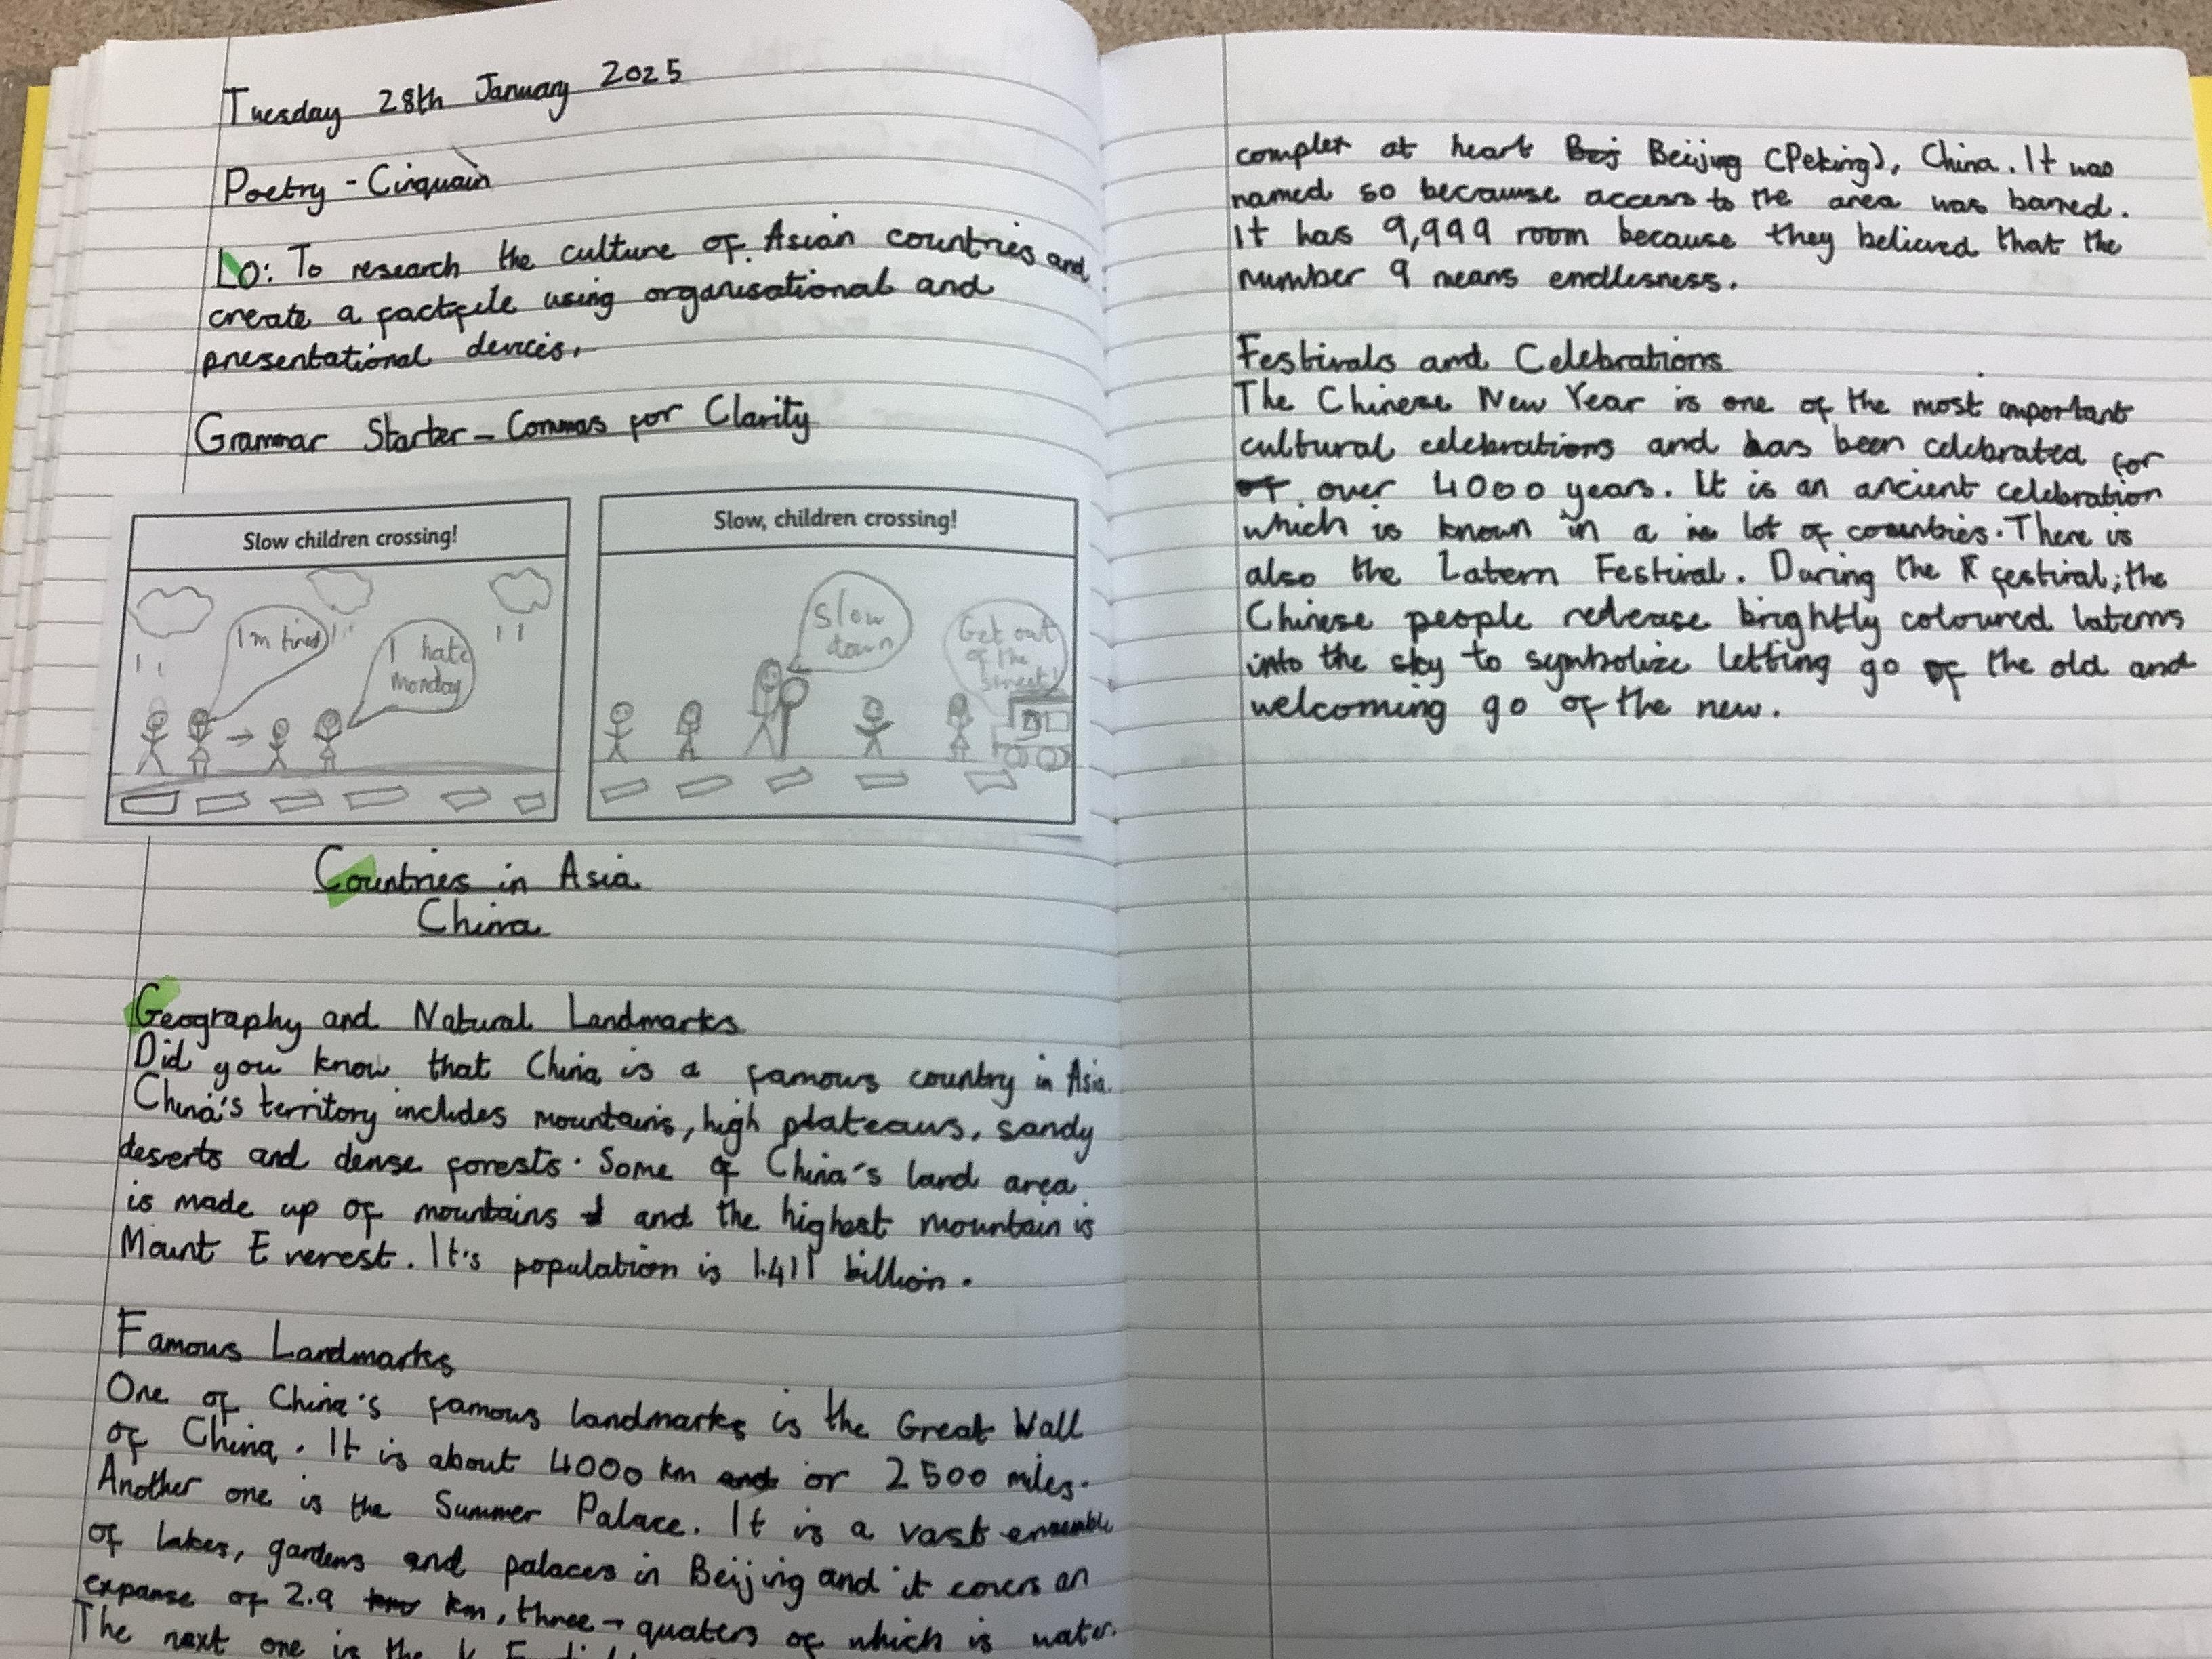 Tuesday 28th January 2025
Poetry - Cinquain
LO: To research the culture of Asian countries and
create a factfile using organisational and
presentational devices.
Grammar Starter - Commas for Clarity
Slow children crossing!
I'm tired
I hate
monday
Slow, children crossing!
Slow
down
Get out
of the
street!
Countries in Asia
China
Geography and Natural Landmarks
Did you know that China is a famous country in Asia.
China's territory includes mountains, high plateaus, sandy
deserts and dense forests. Some of China's land area
is made up of mountains and the highest mountain is
Mount Everest. It's population is 1.411 billion.
Famous Landmarks
One of China's famous landmarks is the Great Wall
of China. It is about 4000 km or 2500 miles.
Another one is the Summer Palace. It is a vast ensemble
of lakes, gardens and palaces in Beijing and it covers an
expanse of 2.9 km, three-quaters of which is water.
The next one is the
complex at heart Beijing (Peking), China. It was
named so becauuse access to the area was barred.
It has 9,999 room because they believed that the
number 9 means endlesness.
Festivals and Celebrations
The Chinese New Year is one of the most important
cultural celebrations and has been celebrated for
over 4000 years. It is an ancient celebration
which is known in a lot of countries. There is
also the Latern Festival. During the festival; the
Chinese people release brightly coloured laterns
into the sky to symbolize letting go of the old and
welcoming go of the new.